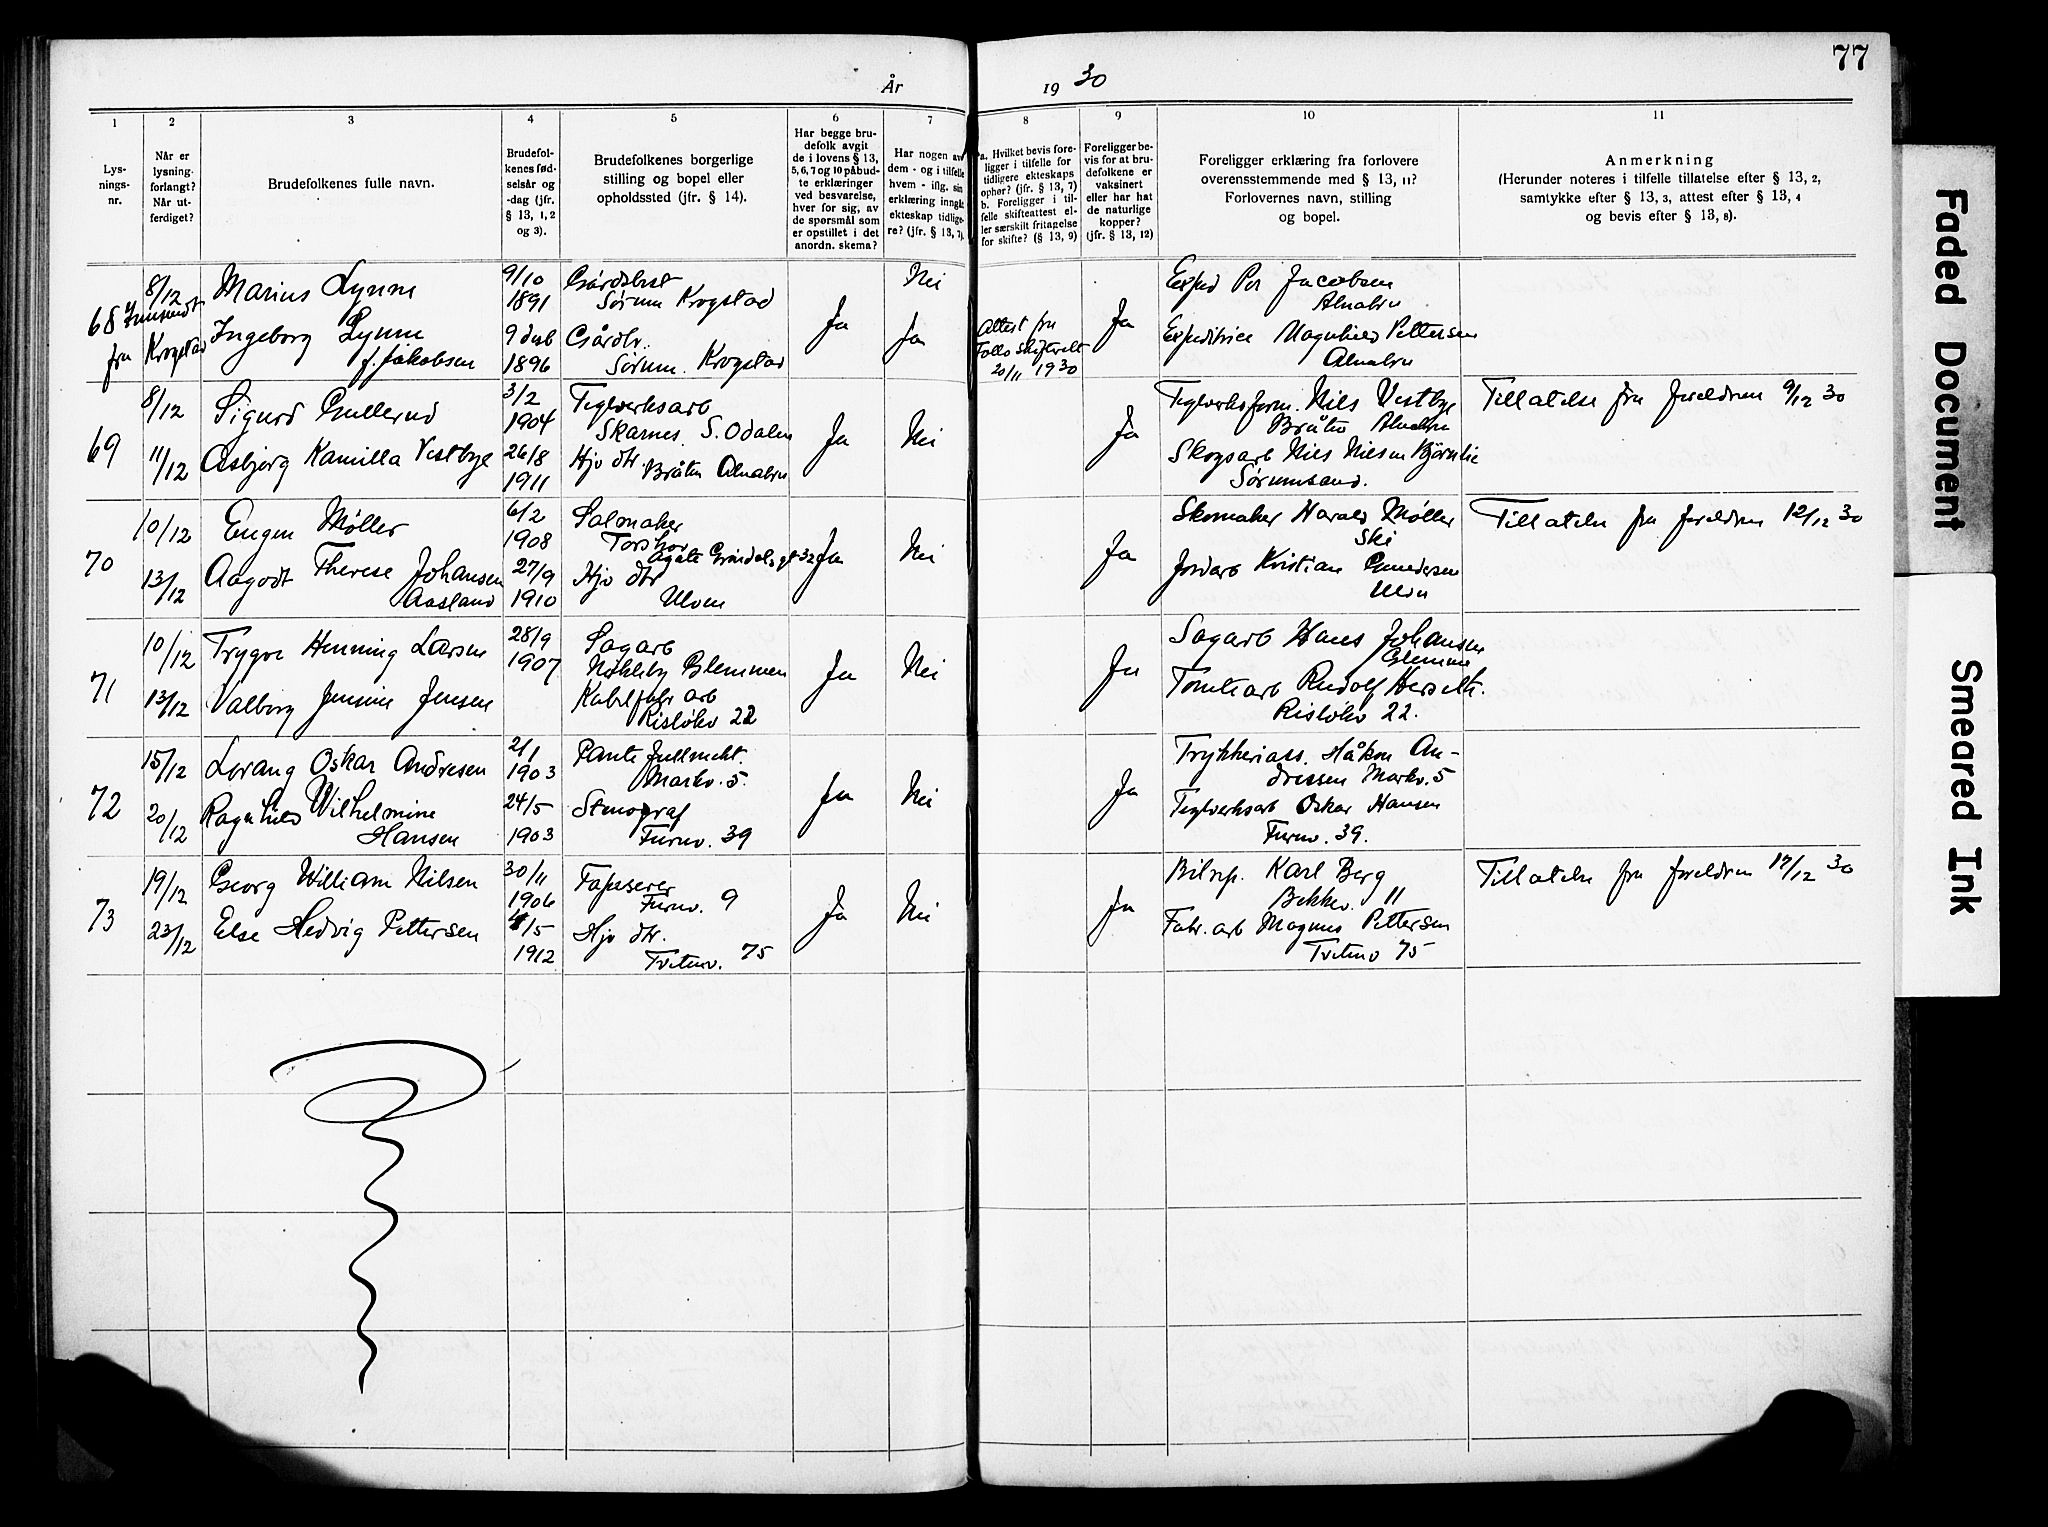 77
År 1930
1 2 3 4 5 6 7 8 9 10 11
Lys-
nings-
nr.
Når er
lysning
forlangt?
Når ut-
ferdiget?
Brudefolkenes fulle navn.
Brudefol-
kenes fød-
selsår og
-dag (jfr.
§ 13, 1, 2
og 3).
Brudefolkenes borgerlige
stilling og bopel eller
opholdssted (jfr. § 14).
Har begge bru-
defolk avgit
de i lovens § 13,
5, 6, 7 og 10 påbud-
te erklæringer
ved besvarelse,
hver for sig, av
de spørsmål som
er opstillet i det
anordn. skema?
Har nogen av
dem - og i tilfelle
hvem - iflg. sin
erklæring inngåt
ekteskap tidlige-
re? (jfr. § 13, 7).
a. Hvilket bevis fore-
ligger i tilfelle for
tidligere ekteskaps
ophør? (jfr. § 13, 7)
b. Foreligger i til-
felle skifteattest el-
ler særskilt fritagelse
for skifte? (§ 13, 9)
Foreligger be-
vis for at bru-
defolkene er
vaksinert
eller har hat
de naturlige
kopper?
(jfr. § 13, 12)
Foreligger erklæring fra forlovere
overensstemmende med § 13, 11?
Forlovernes navn, stilling
og bopel.
Anmerkning
(Herunder noteres i tilfelle tillatelse efter § 13, 2,
samtykke efter § 13, 3, attest efter § 13, 4
og bevis efter § 13, 8).
68
8/12
Innsendt
fra Krogstad
Marius Lynne
Ingeborg Lynne
f. Jakobsen
9/10
1891
9 dub
1896
Gårdsbest
Sørum Krogstad
Gårdbr.
Sørum. Krogstad
Ja
Nei
Ja
Attest fra
Follo Skifterett
20/11 1930
Ja
Exped Per Jacobsen
Alnabru
Expeditrice Magnhild Pettersen
Alnabru
69
8/12
11/12
Sigurd Gullerud
Asbjørg Kamilla Vestbye
3/2
1904
26/8
1911
Teglverksarb
Skarnes. S. Odalen
Hjv dtr.
Bråten Alnabru
Ja
Nei
Ja
Teglverksform. Nils Vestbye
Bråten Alnabru
Skogsarb Nils Nilsen Bjørnlie
Sørumsand.
Tillatelse fra foreldrene 9/12 30
70
10/12
13/12
Eugen Møller
Aagodt Therese Johansen
Aasland
6/2
1908
27/9
1910
Salmaker
Torshov
Agate Grøndals gt 32
Hjv dtr
Ulven
Ja
Nei
Ja
Skomaker Harald Møller
Ski
Jordarb Kristian Gundersen
Ulven
Tillatelse fra foreldrene 12/12 30
71
10/12
13/12
Trygve Henning Larsen
Valborg Jensine Jensen
28/9
1907
Sagarb
Nøkleby Glemmen
Kabelfabr arb
Risløkv 22
Ja
Nei
Ja
Sagarb Hans Johansen
Glemmen
Tomtearb Rudolf Herseth.
Risløkv 22.
72
15/12
20/12
Lorang Oskar Andresen
Ragnhild Wilhelmine
Hansen
2/1
1903
24/5
1903
Pante fullmekt.
Markv. 5.
Stenograf
Furuv. 39
Ja
Nei
Ja
Trykkeriass. Håkon An-
dressen Markv. 5
Teglverksarb Oskar Hansen
Furuv. 39.
73
19/12
23/12
Georg William Nilsen
Else Hedvig Pettersen
30/11
1906
4/5
1912
Tapserer
Furuv. 9
Hjv dtr.
Tvetenv. 75
Ja
Nei
Ja
Bilrep. Karl Berg
Bekkev. 11
Fabr. arb Magnus Pettersen
Tvetenv 75
Tillatelse fra foreldrene 17/12 30
Faded Document
Smeared Ink